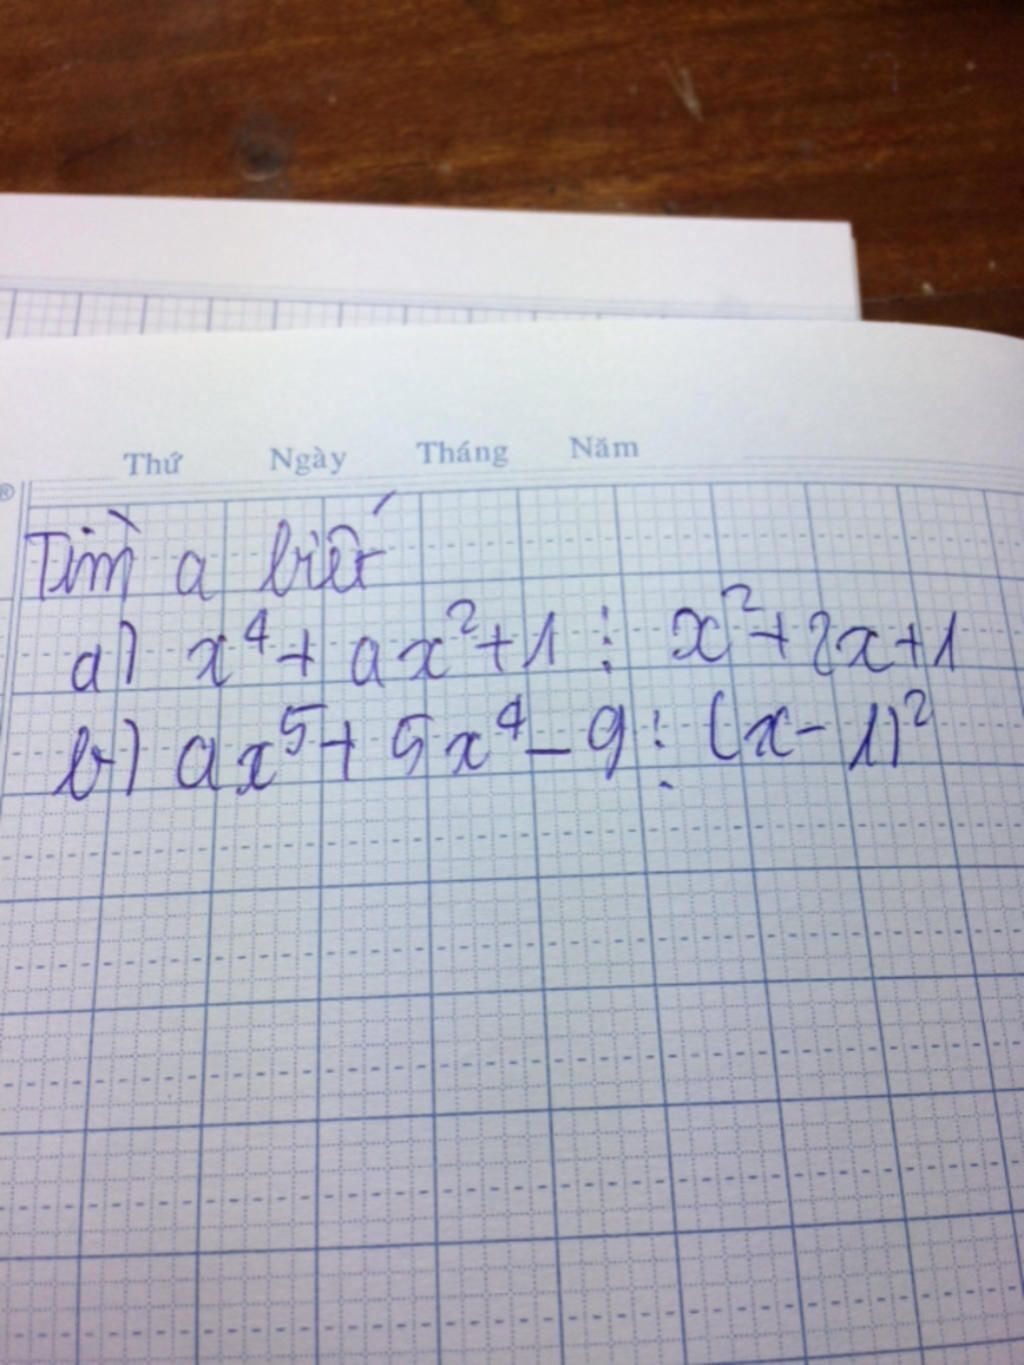 Thứ Ngày Tháng Năm
®
Tìm a biết
a) x⁴ + ax² + 1 ⋮ x² + 2x + 1
b) ax⁵ + 5x⁴ - 9 ⋮ (x - 1)²